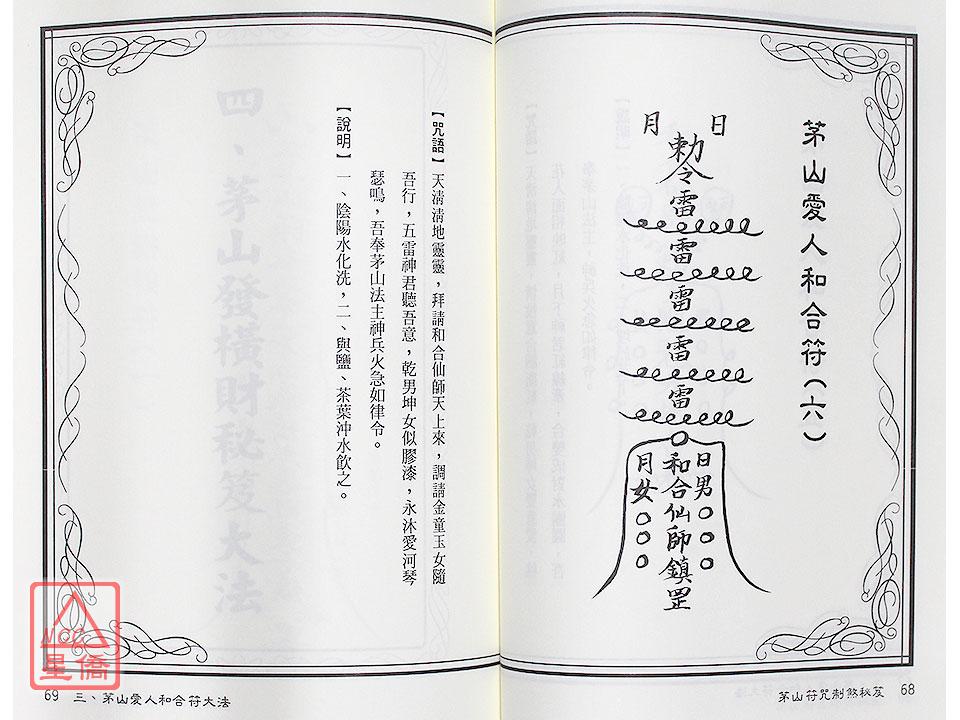 茅山愛人和合符(六)
日
月
勅令
雷
雷
雷
雷
雷
日男○○○
和合仙師鎮罡
月女○○○
茅山符咒制煞秘笈 68
【咒語】天清清地靈靈,拜請和合仙師天上來,調請金童玉女隨
吾行,五雷神君聽吾意,乾男坤女似膠漆,永沐愛河琴
瑟鳴,吾奉茅山法主神兵火急如律令。
【說明】一、陰陽水化洗,二、與鹽、茶葉沖水飲之。
四、茅山發橫財秘笈大法
69 三、茅山愛人和合符大法
NCC
星僑